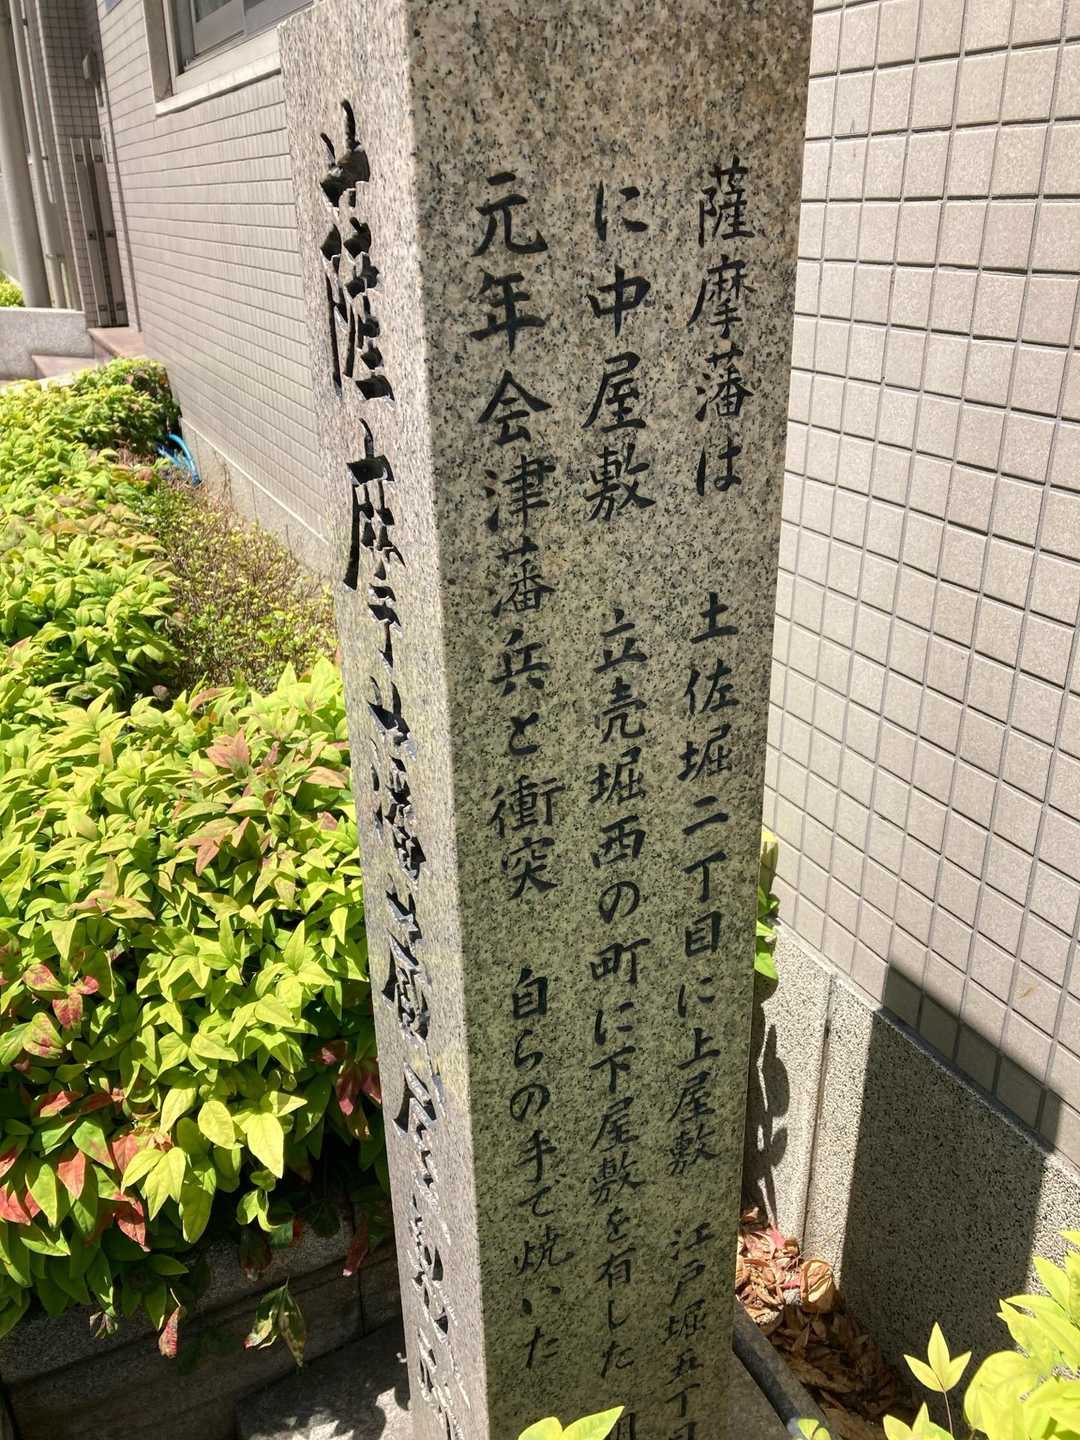 薩摩藩蔵屋敷跡
薩摩藩は 土佐堀二丁目に上屋敷 江戸堀五丁目
に中屋敷 立売堀西の町に下屋敷を有した 明
元年会津藩兵と衝突 自らの手で焼いた